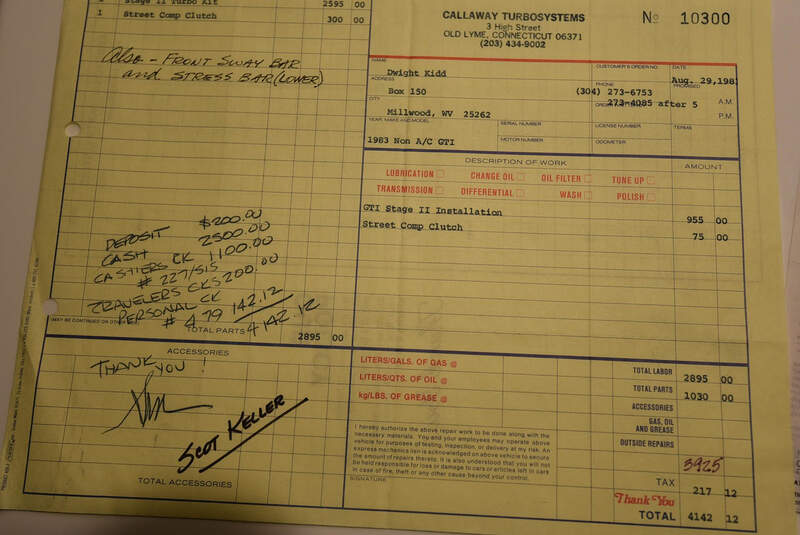 Stage II Turbo Kit 2595 00
1 Street Comp Clutch 300 00
Also - FRONT SWAY BAR
and STRESS BAR (LOWER)
DEPOSIT $200.00
CASH 2500.00
CASHIERS CK 1100.00
# 227/515
TRAVELERS CKS 200.00
PERSONAL CK
# 479 142.12
4142.12
(MAY BE CONTINUED ON OTHER SIDE)
TOTAL PARTS 2895 00
ACCESSORIES
THANK
YOU!
SCOT KELLER
TOTAL ACCESSORIES
CALLAWAY TURBOSYSTEMS
3 High Street
OLD LYME, CONNECTICUT 06371
(203) 434-9002
No 10300
NAME
Dwight Kidd
CUSTOMER'S ORDER NO.
DATE
Aug. 29,198
ADDRESS
Box 150
PHONE
(304) 273-6753
PROMISED
273-4085 after 5
A.M.
P.M.
CITY
Millwood, WV 25262
YEAR, MAKE AND MODEL
1983 Non A/C GTI
SERIAL NUMBER
MOTOR NUMBER
LICENSE NUMBER
ODOMETER
TERMS
DESCRIPTION OF WORK AMOUNT
LUBRICATION CHANGE OIL OIL FILTER TUNE UP
TRANSMISSION DIFFERENTIAL WASH POLISH
GTI Stage II Installation 955 00
Street Comp Clutch 75 00
LITERS/GALS. OF GAS @
LITERS/QTS. OF OIL @
kg/LBS. OF GREASE @
TOTAL LABOR 2895 00
TOTAL PARTS 1030 00
ACCESSORIES
GAS, OIL
AND GREASE
OUTSIDE REPAIRS
3925
I hereby authorize the above repair work to be done along with the
necessary materials. You and your employees may operate above
vehicle for purposes of testing, inspection, or delivery at my risk. An
express mechanics lien is acknowledged on above vehicle to secure
the amount of repairs thereto. It is also understood that you will not
be held responsible for loss or damage to cars or articles left in cars
in case of fire, theft or any other cause beyond your control.
SIGNATURE
TAX 217 12
Thank You
TOTAL 4142 12